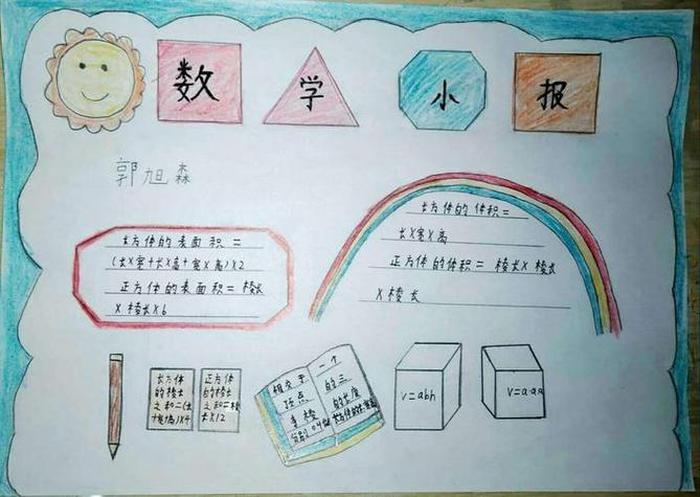 数 学 小 报
郭旭森
长方体的表面积=
(长×宽+长×高+宽×高)×2
正方体的表面积=棱长
×棱长×6
长方体的体积=
长×宽×高
正方体的体积=棱长×棱长
×棱长
长方体
的棱长
之和=(长
+宽+高)×4
正方体
的棱长
之和=棱
长×12
相交于
顶点
一个
的三
的长度
V=abh
V=a·a·a